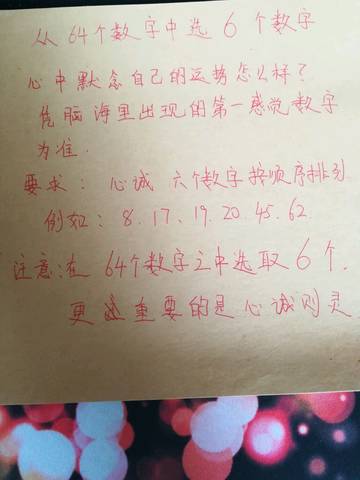 从64个数字中选6个数字
心中默念自己的运势怎么样?
凭脑海里出现的第一感觉数字
为准.
要求: 心诚 六个数字按顺序排列
例如: 8.17、19.20.45.62
注意:在64个数字之中选取6个.
更重要的是心诚则灵